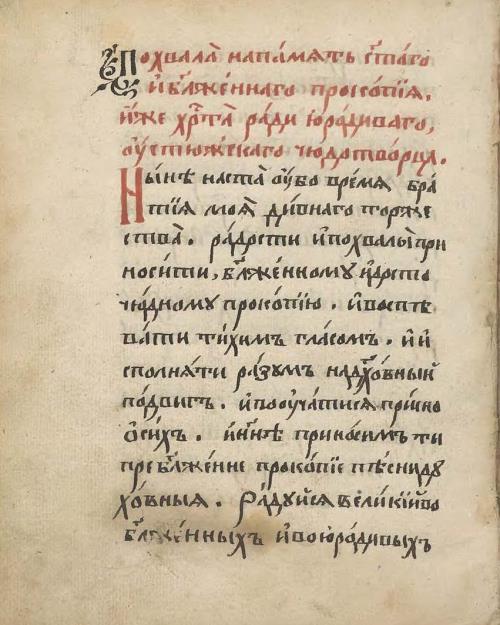 Похвала̀ напа́мѧть ст҃а́го
и҆бл҃же́ннаго проко́пїѧ,
и҆́же хр҇та̀ ра́ди юра́диваго,
ѹ҆стю́жскаго чюдотво́рца.
Ны́нѣ наста̀ ѹ҆́бо вре́мѧ бра́
тїѧ моѧ̀ ди́внаго торже
ства̀. ра́дости и҆похвалы̀ при
носи́ти, бл҃же́нному и҆до́сто
чю́дному проко́пїю. и҆воспѣ
ва́ти ти́химъ гла́сомъ. и҆и
сполнѧ́ти ра́зумъ надх҃о́вныи
по́двигъ. и҆поѹча́тисѧ при́сно
ѡ҆си́хъ. и҆н҃нѣ прино́симъ ти
пребл҃же́нне проко́пїе пѣ́сниду
хо́вныѧ. ра́дуйсѧ вели́кїй во
бл҃же́нныхъ и҆во юра́дивыхъ